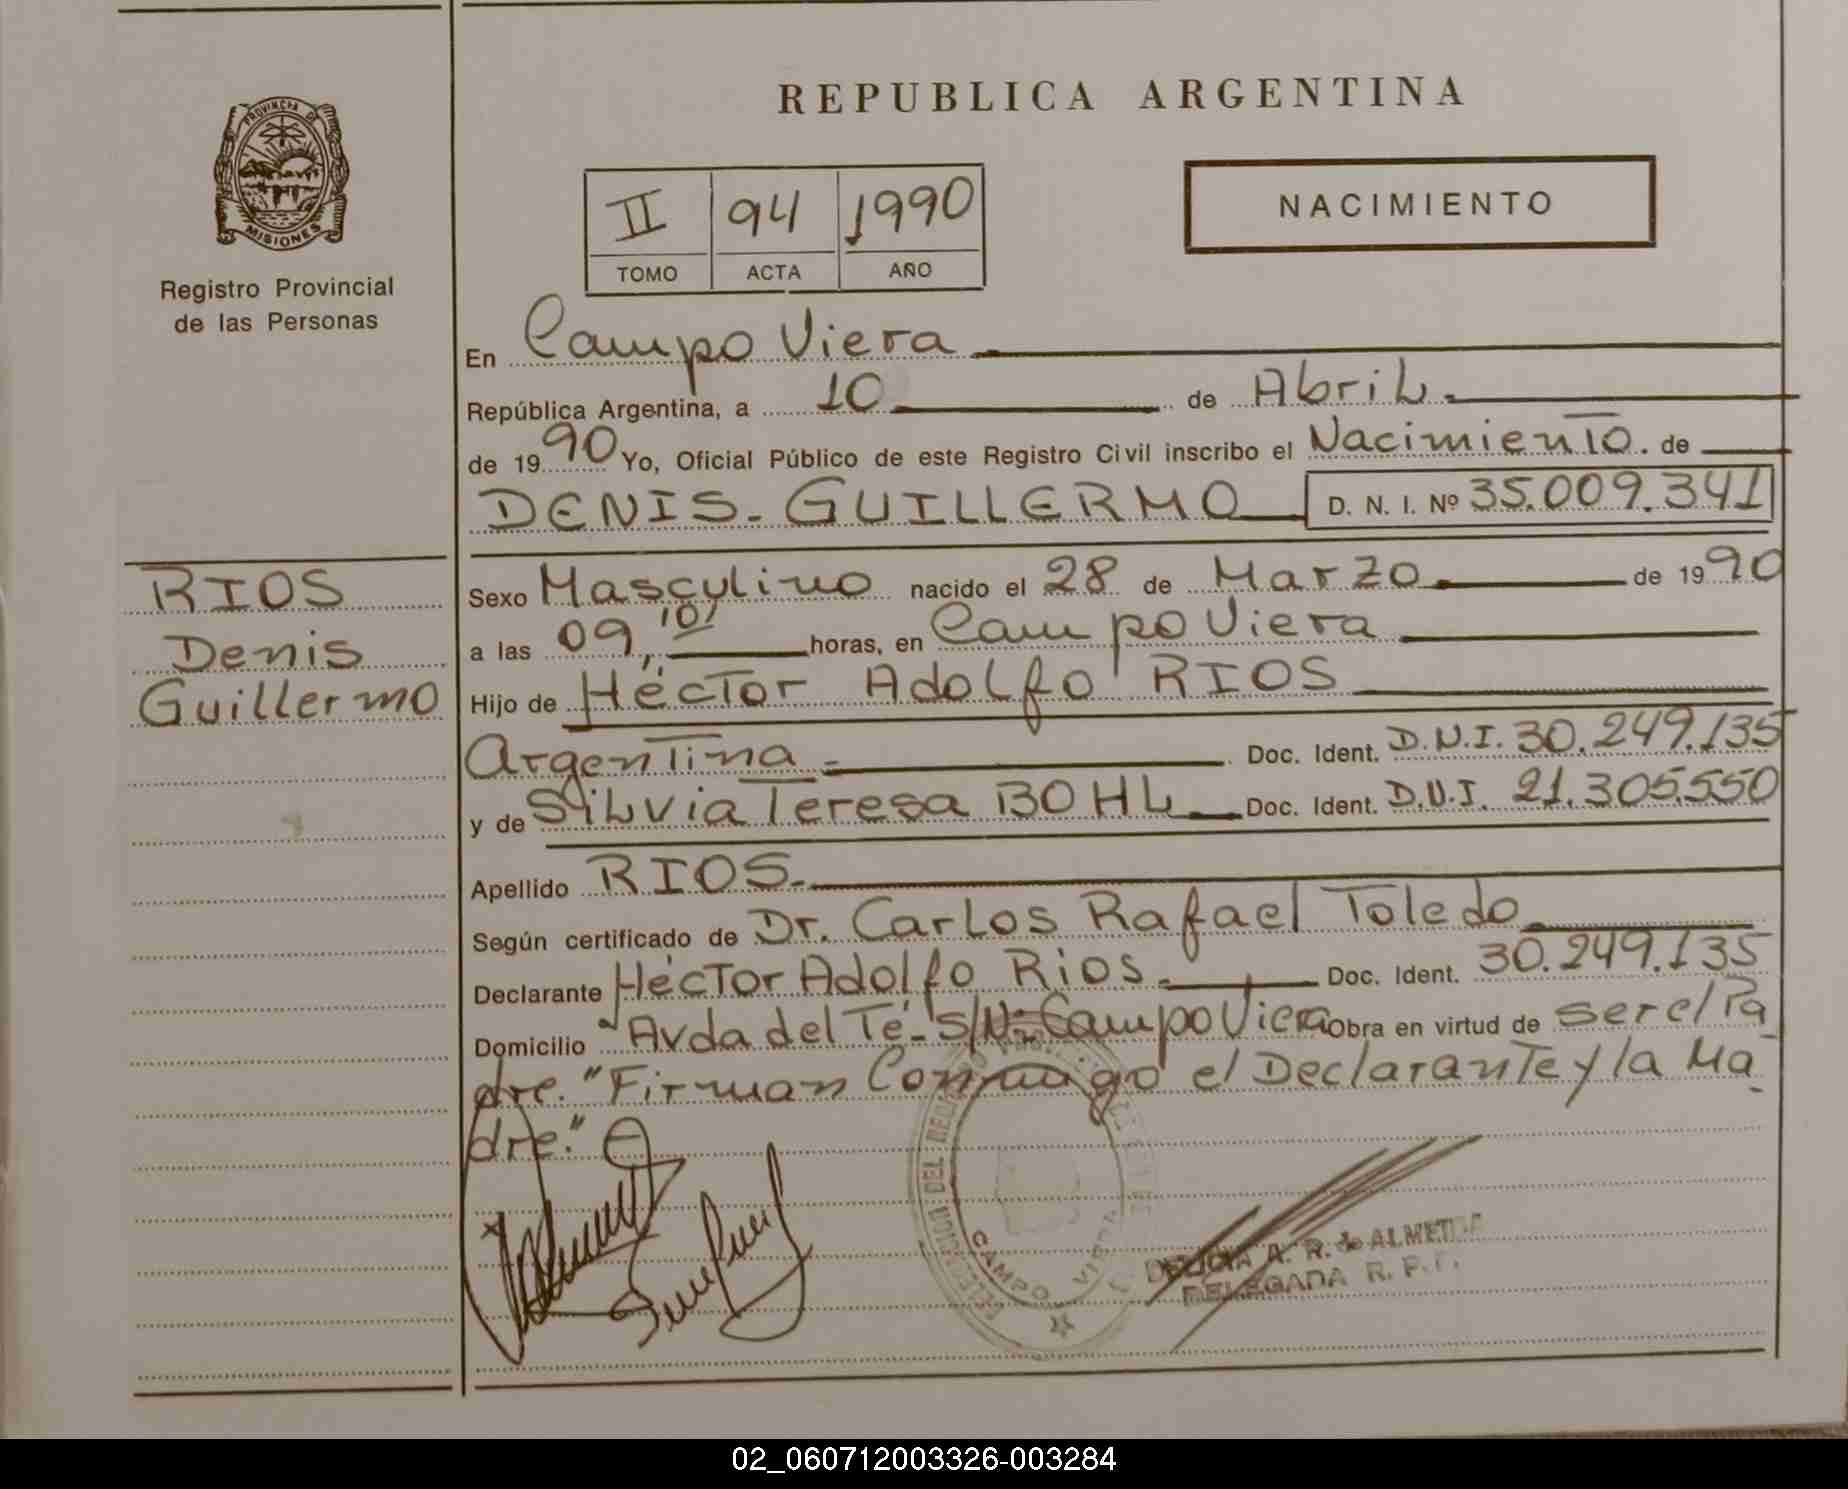 REPUBLICA ARGENTINA
PROVINCIA DE MISIONES
Registro Provincial
de las Personas
II 94 1990
TOMO ACTA AÑO
NACIMIENTO
En Campo Viera
República Argentina, a 10 de Abril.
de 1990 Yo, Oficial Público de este Registro Civil inscribo el Nacimiento. de
DENIS-GUILLERMO D. N. I. Nº 35.009.341
RIOS
Denis
Guillermo
Sexo Masculino nacido el 28 de Marzo de 1990
a las 09,10' horas, en Campo Viera
Hijo de Héctor Adolfo RIOS
Argentina.- Doc. Ident. D.N.I. 30.249.135
y de Silvia Teresa BOHL Doc. Ident. D.N.I. 21.305.550
Apellido RIOS.-
Según certificado de Dr. Carlos Rafael Toledo.
Declarante Héctor Adolfo Rios. Doc. Ident. 30.249.135
Domicilio Avda del Té- S/Nº Campo Viera Obra en virtud de ser el Pa
dre. "Firman Conmigo el Declarante y la Ma-
dre."
CAMPO VIERA
A. R. de ALMEIDA
DELEGADA R. P. P.
02_060712003326-003284